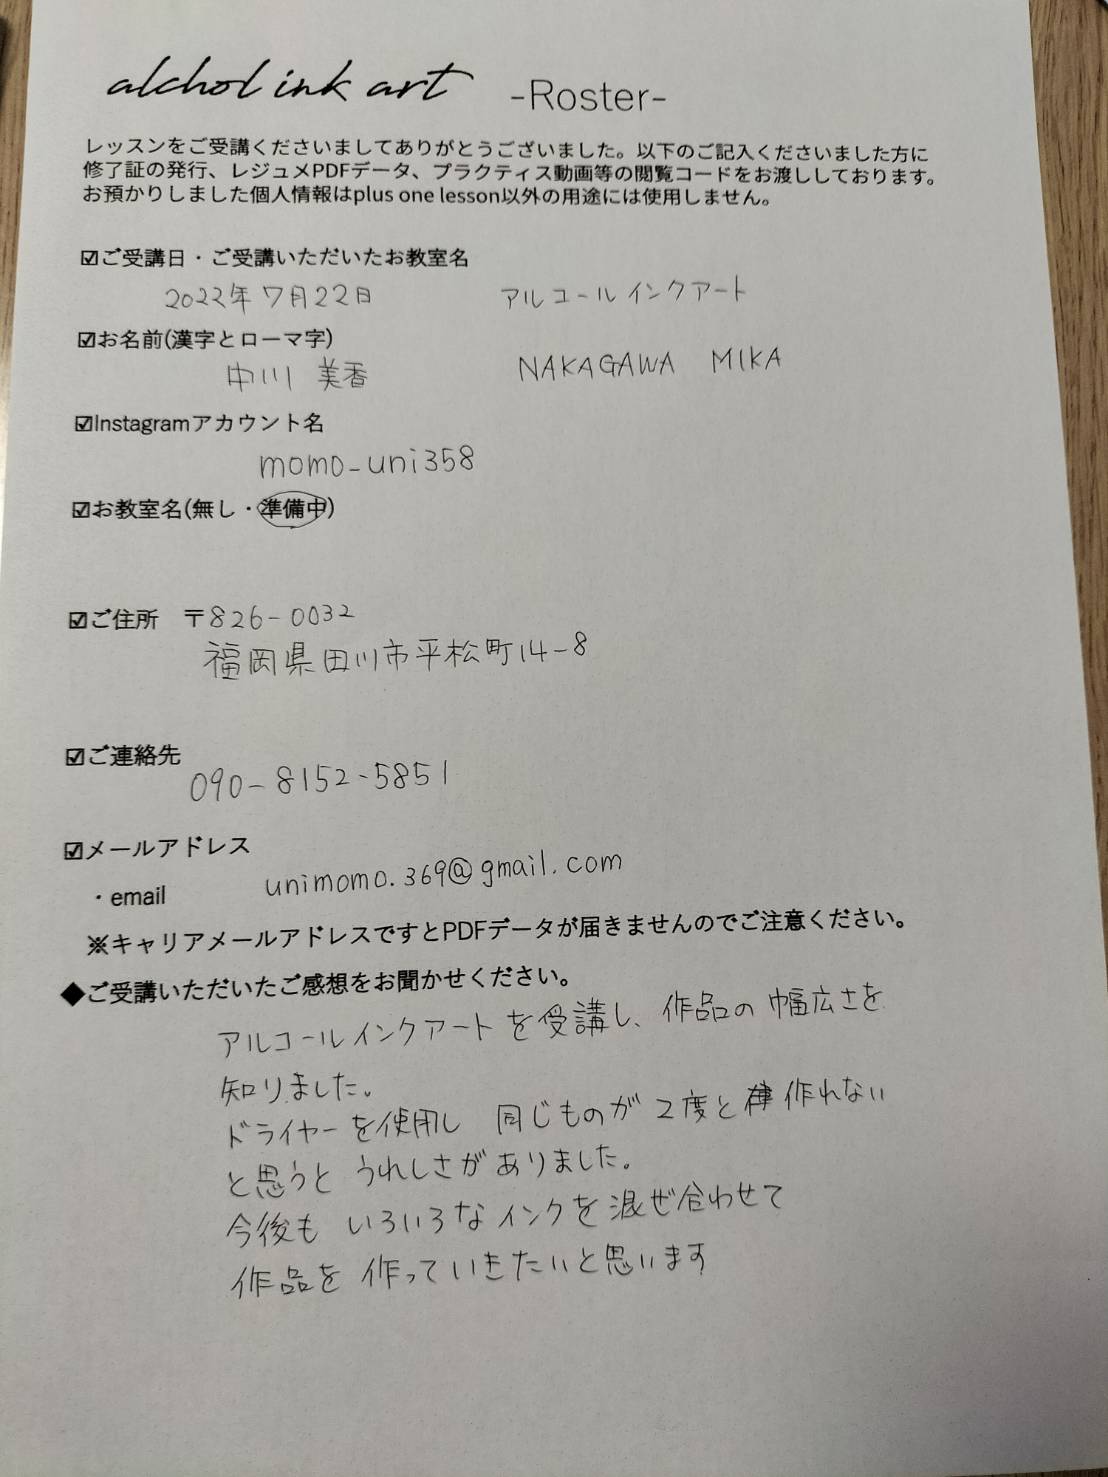 alchol ink art -Roster-
レッスンをご受講くださいましてありがとうございました。以下のご記入くださいました方に
修了証の発行、レジュメPDFデータ、プラクティス動画等の閲覧コードをお渡ししております。
お預かりしました個人情報はplus one lesson以外の用途には使用しません。
☑ご受講日・ご受講いただいたお教室名
2022年7月22日 アルコールインクアート
☑お名前(漢字とローマ字)
中川 美香 NAKAGAWA MIKA
☑Instagramアカウント名
momo_uni358
☑お教室名(無し・準備中)
☑ご住所 〒826-0032
福岡県田川市平松町14-8
☑ご連絡先
090-8152-5851
☑メールアドレス
・email unimomo.369@gmail.com
※キャリアメールアドレスですとPDFデータが届きませんのでご注意ください。
◆ご受講いただいたご感想をお聞かせください。
アルコールインクアートを受講し、作品の幅広さを
知りました。
ドライヤーを使用し 同じものが2度と作れない
と思うと うれしさがありました。
今後も いろいろなインクを混ぜ合わせて
作品を 作っていきたいと思います